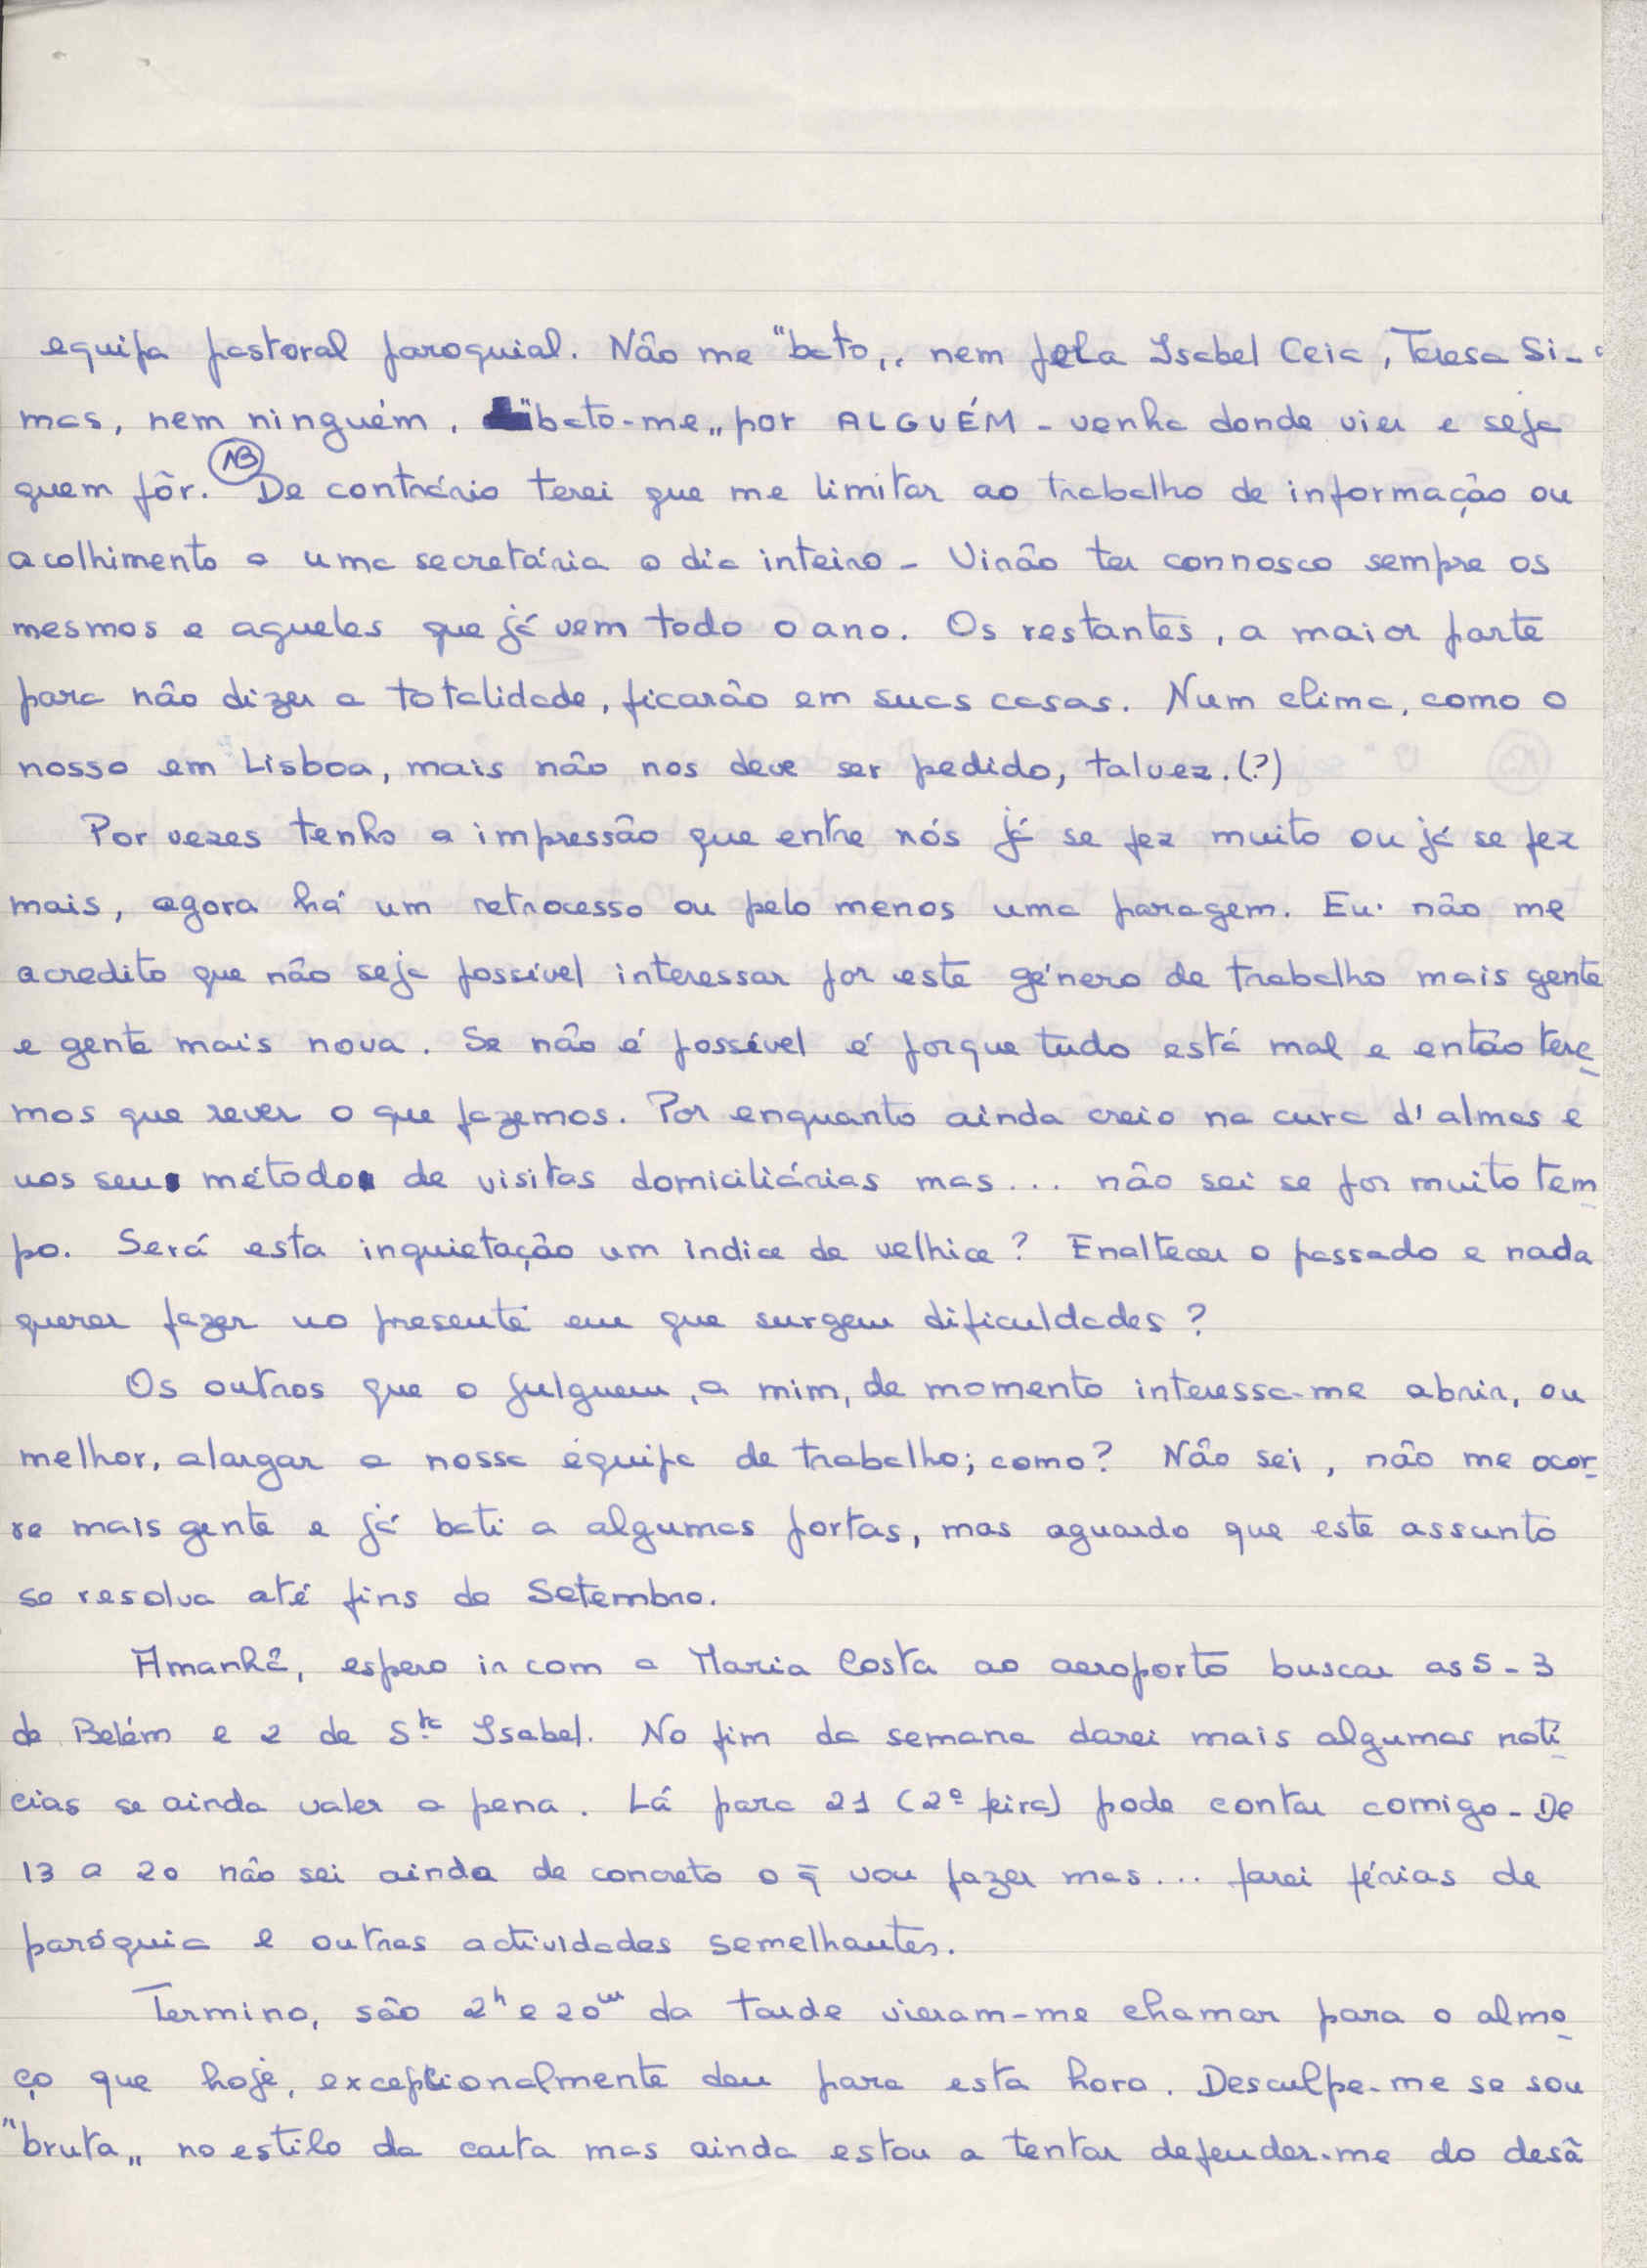 equipa pastoral paroquial. Não me "bato„ nem pela Isabel Ceia, Teresa Si-
mas, nem ninguém, "bato-me„ por ALGUÉM - venha donde vier e seja
quem fôr. NB De contrário terei que me limitar ao trabalho de informação ou
acolhimento a uma secretária o dia inteiro - Virão ter connosco sempre os
mesmos e aqueles que já vem todo o ano. Os restantes, a maior parte
para não dizer a totalidade, ficarão em suas casas. Num clima, como o
nosso em Lisboa, mais não nos deve ser pedido, talvez. (?)
Por vezes tenho a impressão que entre nós já se fez muito ou já se fez
mais, agora há um retrocesso ou pelo menos uma paragem. Eu não me
acredito que não seja possível interessar por este género de trabalho mais gente
e gente mais nova. Se não é possível é porque tudo está mal e então tere
mos que rever o que fazemos. Por enquanto ainda creio na cura d'almas e
nos seus métodos de visitas domiciliárias mas... não sei se por muito tem
po. Será esta inquietação um índice de velhice? Enaltecer o passado e nada
querer fazer no presente em que surgem dificuldades?
Os outros que o julguem, a mim, de momento interessa-me abrir, ou
melhor, alargar a nossa équipa de trabalho; como? Não sei, não me ocor
re mais gente e já bati a algumas portas, mas aguardo que este assunto
se resolva até fins de Setembro.
Amanhã, espero ir com a Maria Costa ao aeroporto buscar as 5 - 3
de Belém e 2 de S.ta Isabel. No fim da semana darei mais algumas notí
cias se ainda valer a pena. Lá para 21 (2ª feira) pode contar comigo - De
13 a 20 não sei ainda de concreto o q̄ vou fazer mas... farei férias de
paróquia e outras actividades semelhantes.
Termino, são 2h e 20m da tarde vieram-me chamar para o almo
ço que hoje, excepcionalmente deu para esta hora. Desculpe-me se sou
"bruta„ no estilo da carta mas ainda estou a tentar defender-me do desâ